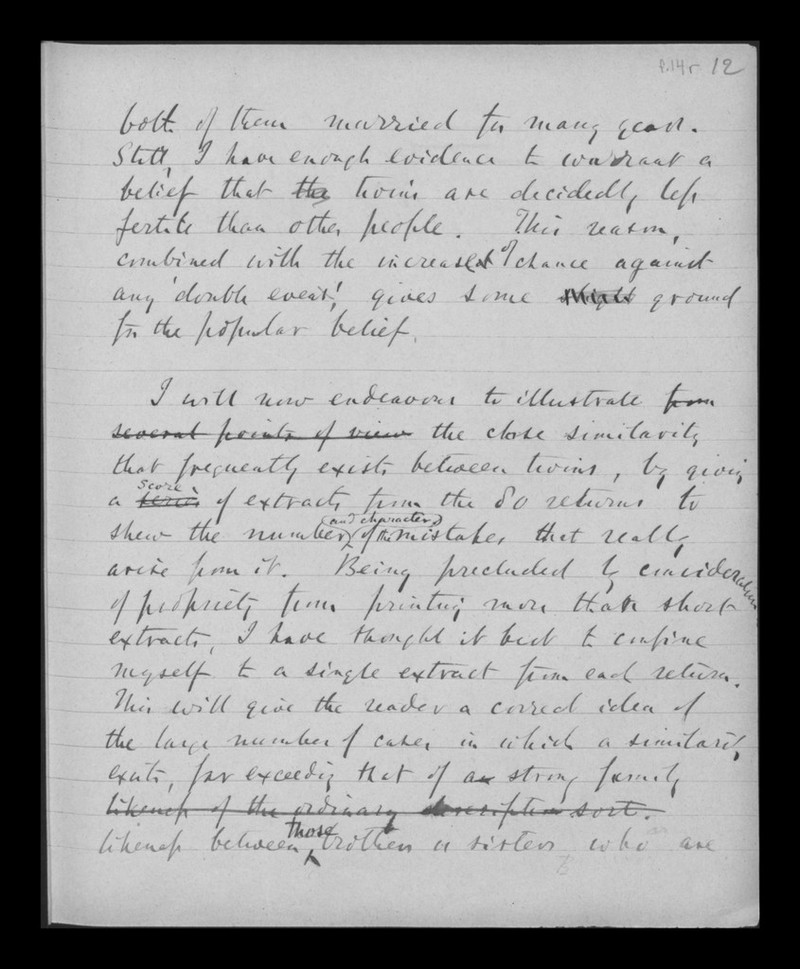 f.14r 12
both of them married for many years.
Still, I have enough evidence to warrant a
belief that the twins are decidedly less
fertile than other people. This reason,
combined with the increased of chance against
any 'double event', gives some slight ground
for the popular belief.
I will now endeavour to illustrate from
several points of view the close similarity
that frequently exists between twins, by giving
score
a series of extracts from the 80 returns to
(and character)
shew the number of the mistakes that really
arise from it. Being precluded by consideration
of propriety from printing more than short
extracts, I have thought it best to confine
myself to a single extract from each return.
This will give the reader a correct idea of
the large number of cases in which a similarity
exists, far exceeding that of a strong family
likeness of the ordinary description sort.
those
likeness between brothers or sisters who are